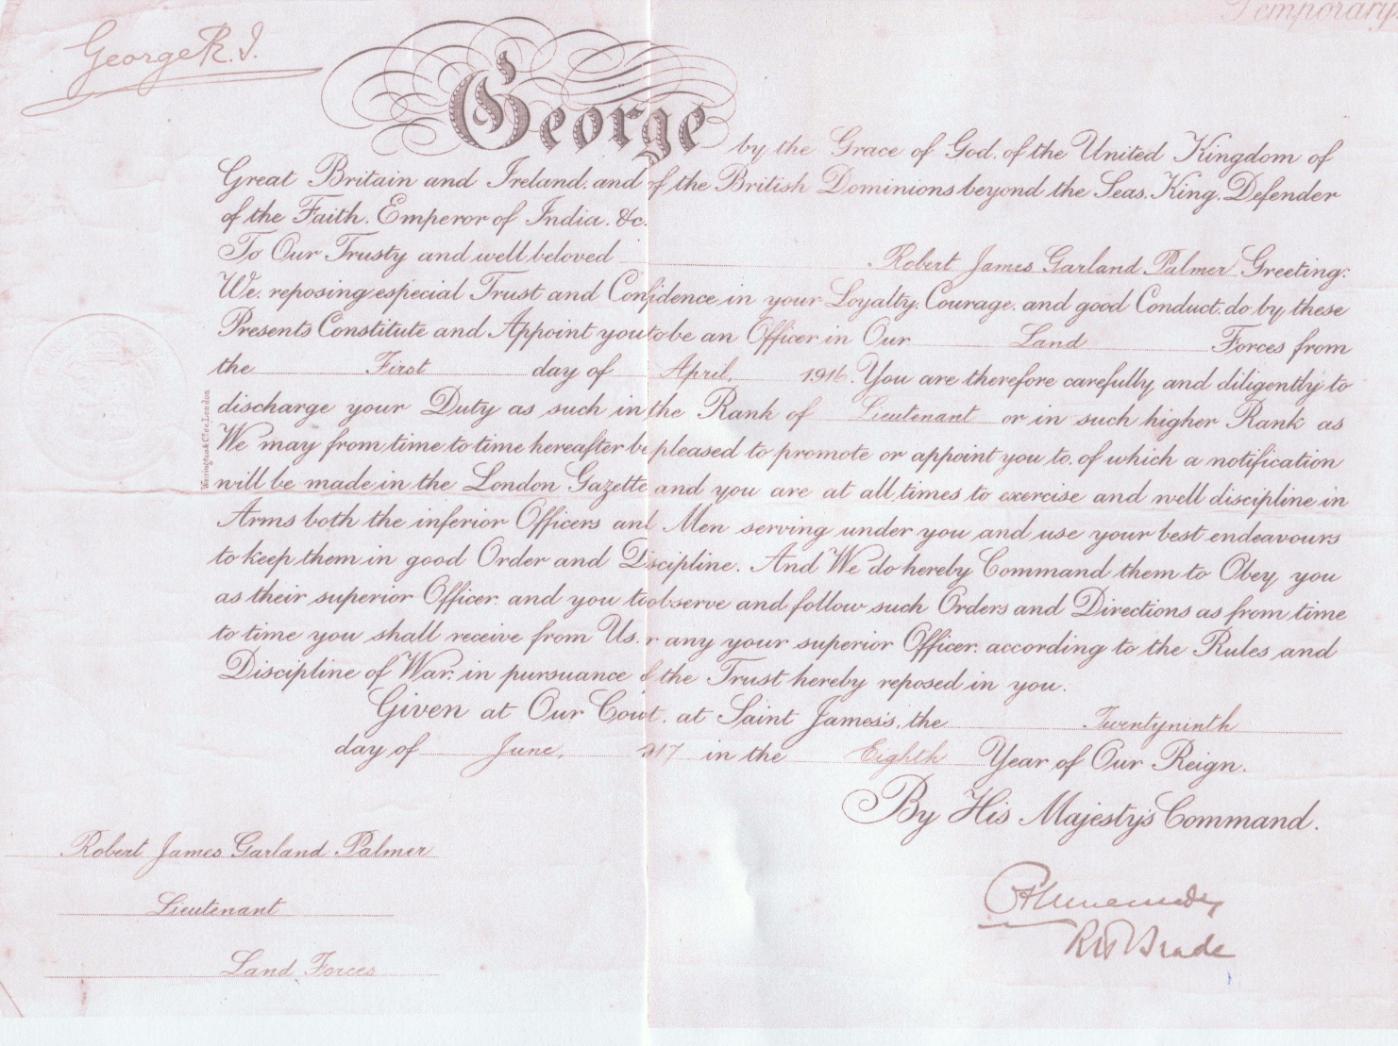 Temporary.
George R. I.
George by the Grace of God, of the United Kingdom of
Great Britain and Ireland, and of the British Dominions beyond the Seas, King, Defender
of the Faith, Emperor of India, &c.
To Our Trusty and well beloved Robert James Garland Palmer Greeting:
We, reposing especial Trust and Confidence in your Loyalty, Courage, and good Conduct, do by these
Presents Constitute and Appoint you to be an Officer in Our Land Forces from
the First day of April, 1916. You are therefore carefully and diligently to
discharge your Duty as such in the Rank of Lieutenant or in such higher Rank as
We may from time to time hereafter be pleased to promote or appoint you to, of which a notification
will be made in the London Gazette, and you are at all times to exercise and well discipline in
Arms both the inferior Officers and Men serving under you and use your best endeavours
to keep them in good Order and Discipline. And We do hereby Command them to Obey you
as their superior Officer, and you to observe and follow such Orders and Directions as from time
to time you shall receive from Us, or any your superior Officer, according to the Rules and
Discipline of War, in pursuance of the Trust hereby reposed in you.
Given at Our Court, at Saint James's, the Twentyninth
day of June, 1917 in the Eighth Year of Our Reign.
By His Majesty's Command.
Robert James Garland Palmer
Lieutenant
Land Forces
R H Brade